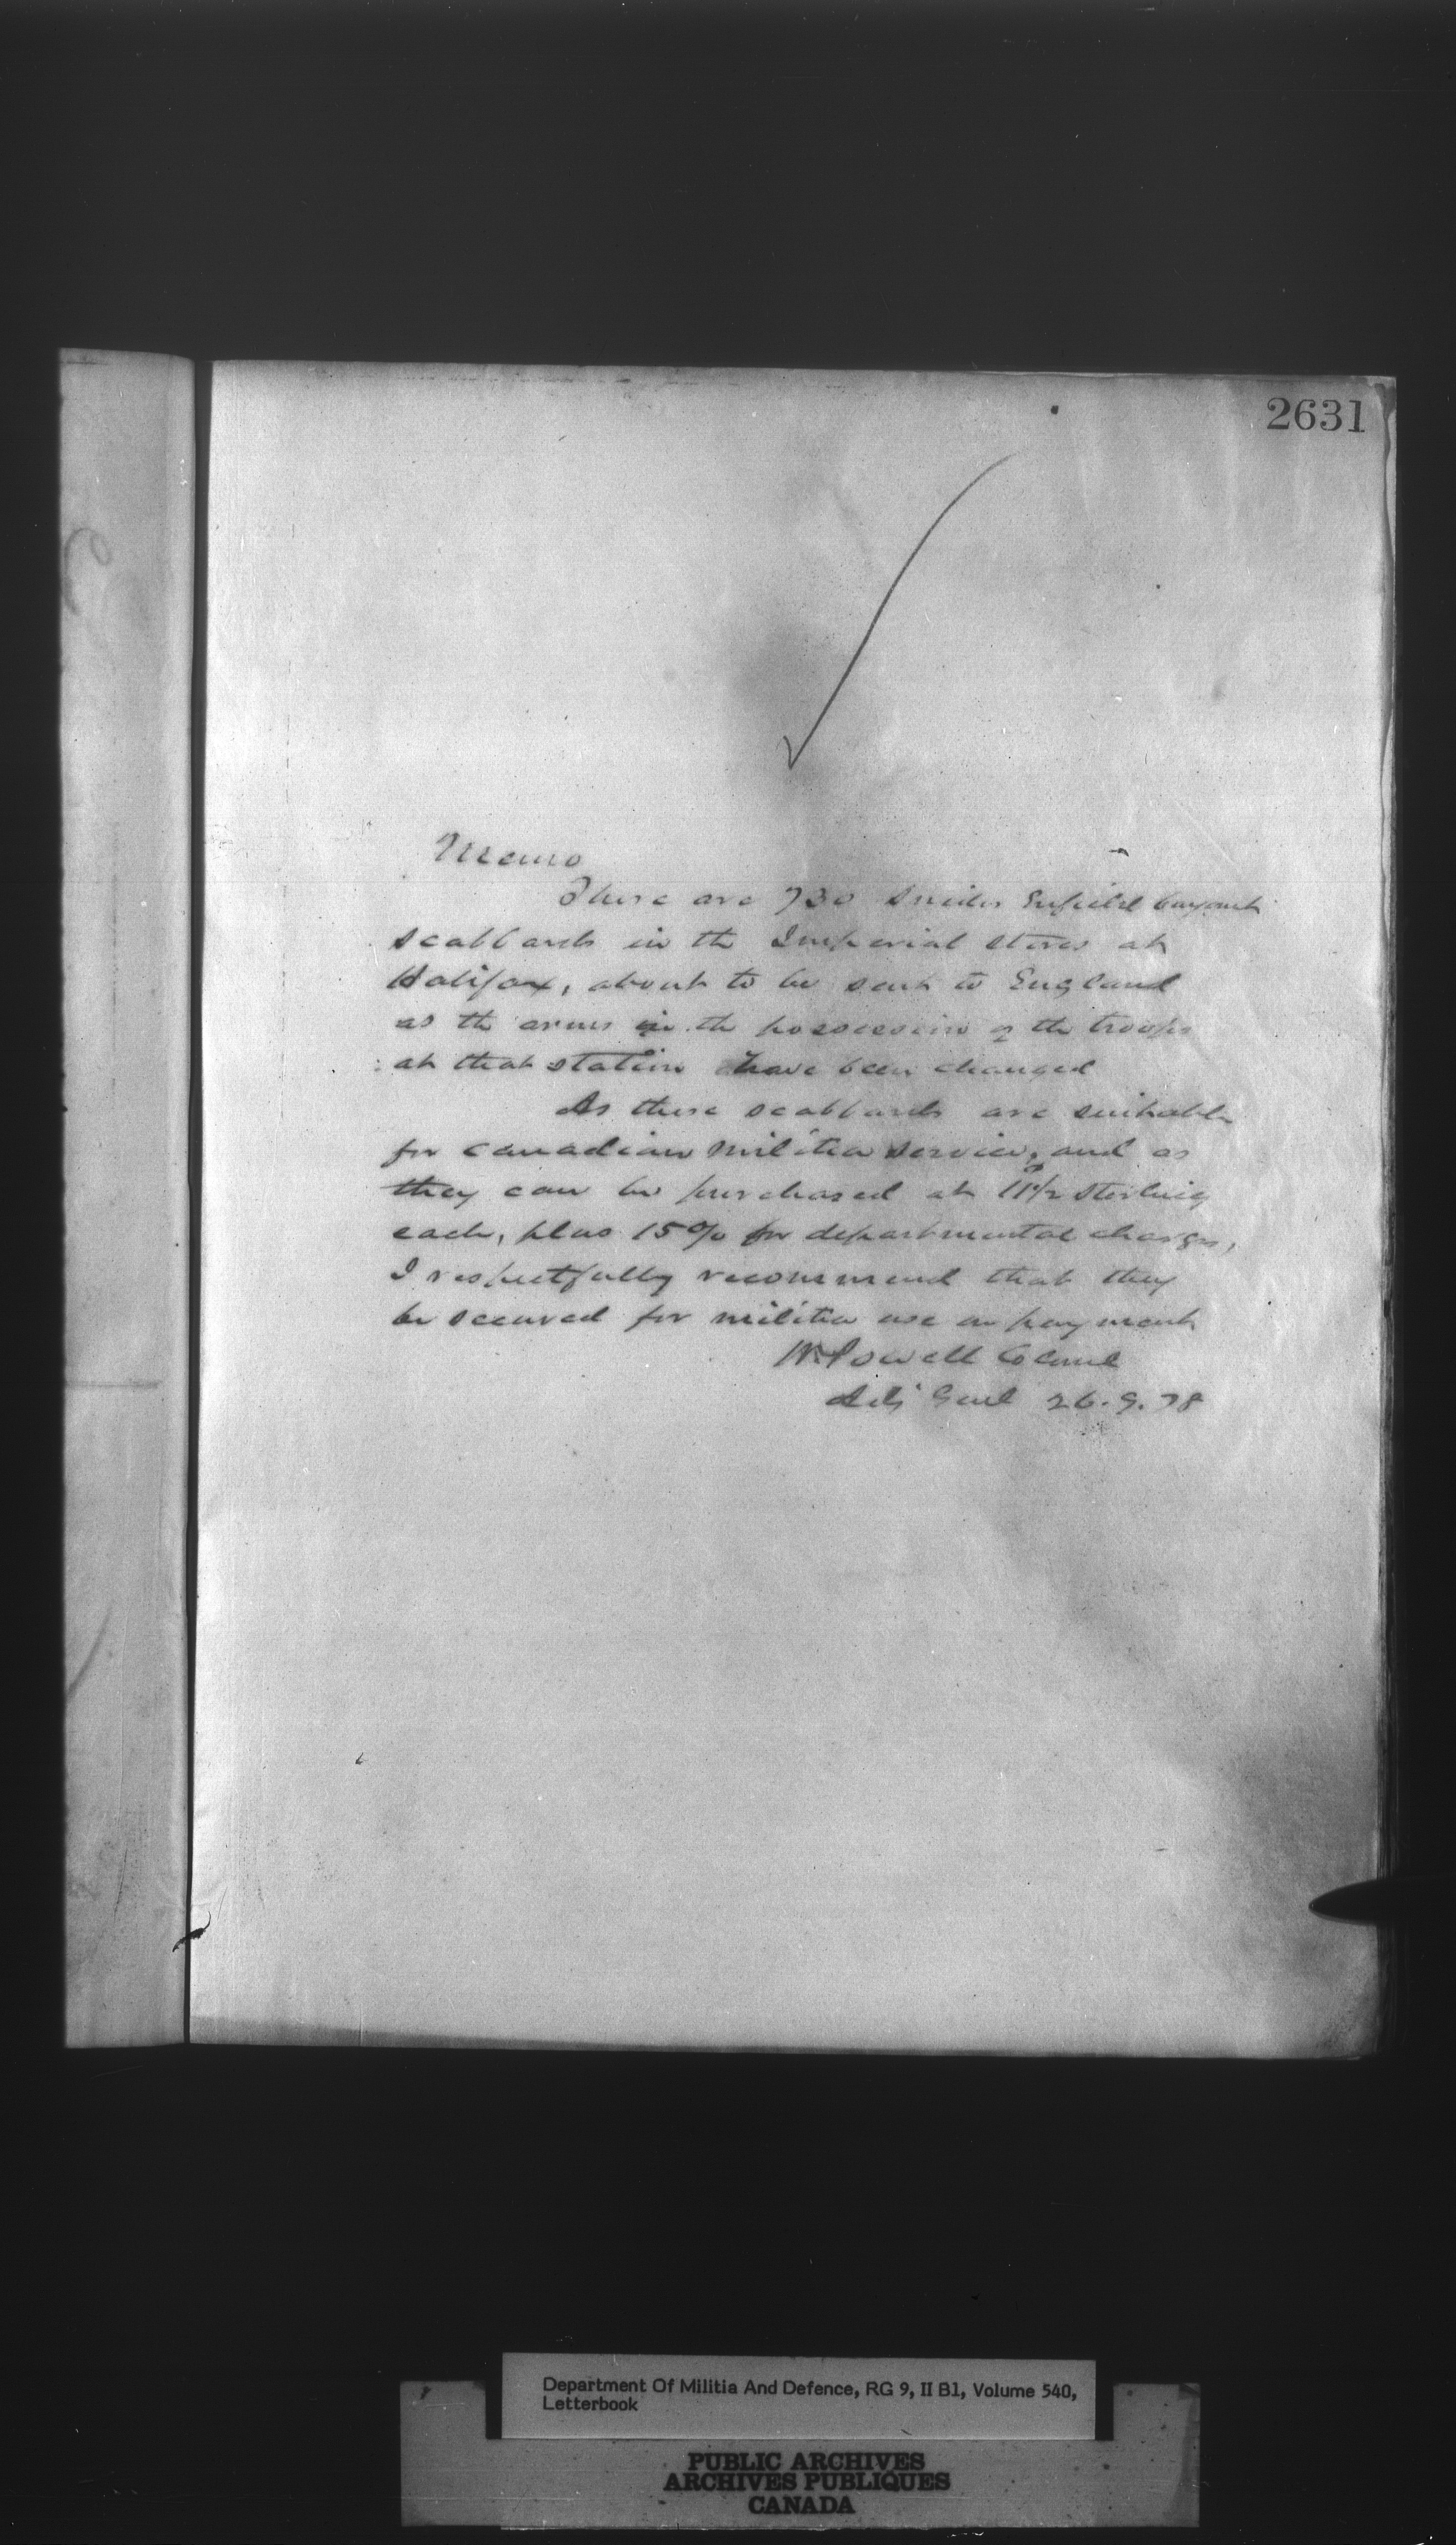 2631
Memo
There are 730 Snider Enfield bayonet
scabbards in the Imperial stores at
Halifax, about to be sent to England
as the arms in the possession of the troops
at that station have been changed
As these scabbards are suitable
for Canadian Militia service, and as
they can be purchased at 11½ sterling
each, plus 15% for departmental charges,
I respectfully recommend that they
be secured for militia use on payment
W Powell Colonel
Adj Genl 26.9.78
Department Of Militia And Defence, RG 9, II B1, Volume 540,
Letterbook
PUBLIC ARCHIVES
ARCHIVES PUBLIQUES
CANADA